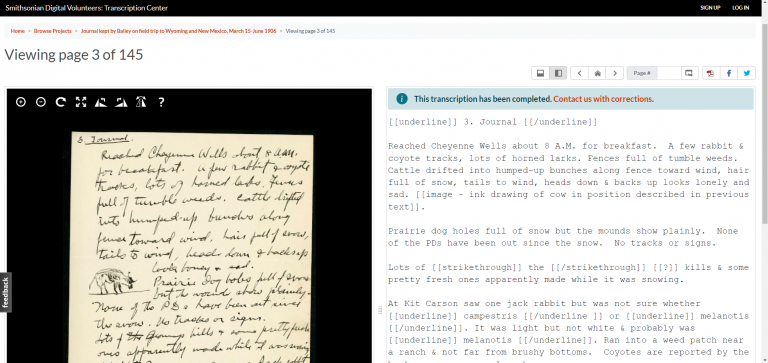 Smithsonian Digital Volunteers: Transcription Center
SIGN UP LOG IN
Home › Browse Projects › Journal kept by Bailey on field trip to Wyoming and New Mexico, March 15-June 1906 › Viewing page 3 of 145
Viewing page 3 of 145
Page #
feedback
3. Journal.
Reached Cheyenne Wells about 8 A.M.
for breakfast. A few rabbit & coyote
tracks, lots of horned larks. Fences
full of tumble weeds. Cattle drifted
into humped-up bunches along
fence toward wind, hair full of snow,
tails to wind, heads down & backs up
looks loney & sad.
Prairie dog holes full of snow
but the mounds show plainly.
None of the PDs have been out since
the snow. No tracks or signs.
Lots of the kills & some pretty fresh
ones apparently made while it was snowing
This transcription has been completed. Contact us with corrections.
[[underline]] 3. Journal [[/underline]]
Reached Cheyenne Wells about 8 A.M. for breakfast. A few rabbit &
coyote tracks, lots of horned larks. Fences full of tumble weeds.
Cattle drifted into humped-up bunches along fence toward wind, hair
full of snow, tails to wind, heads down & backs up looks lonely and
sad. [[image - ink drawing of cow in position described in previous
text]].
Prairie dog holes full of snow but the mounds show plainly. None
of the PDs have been out since the snow. No tracks or signs.
Lots of [[strikethrough]] the [[/strikethrough]] [[?]] kills & some
pretty fresh ones apparently made while it was snowing.
At Kit Carson saw one jack rabbit but was not sure whether
[[underline]] campestris [[/underline ]] or [[underline]] melanotis
[[/underline]]. It was light but not white & probably was
[[underline]] melanotis [[/underline]]. Ran into a weed patch near
a ranch & not far from brushy bottoms. Coyotes are reported by the